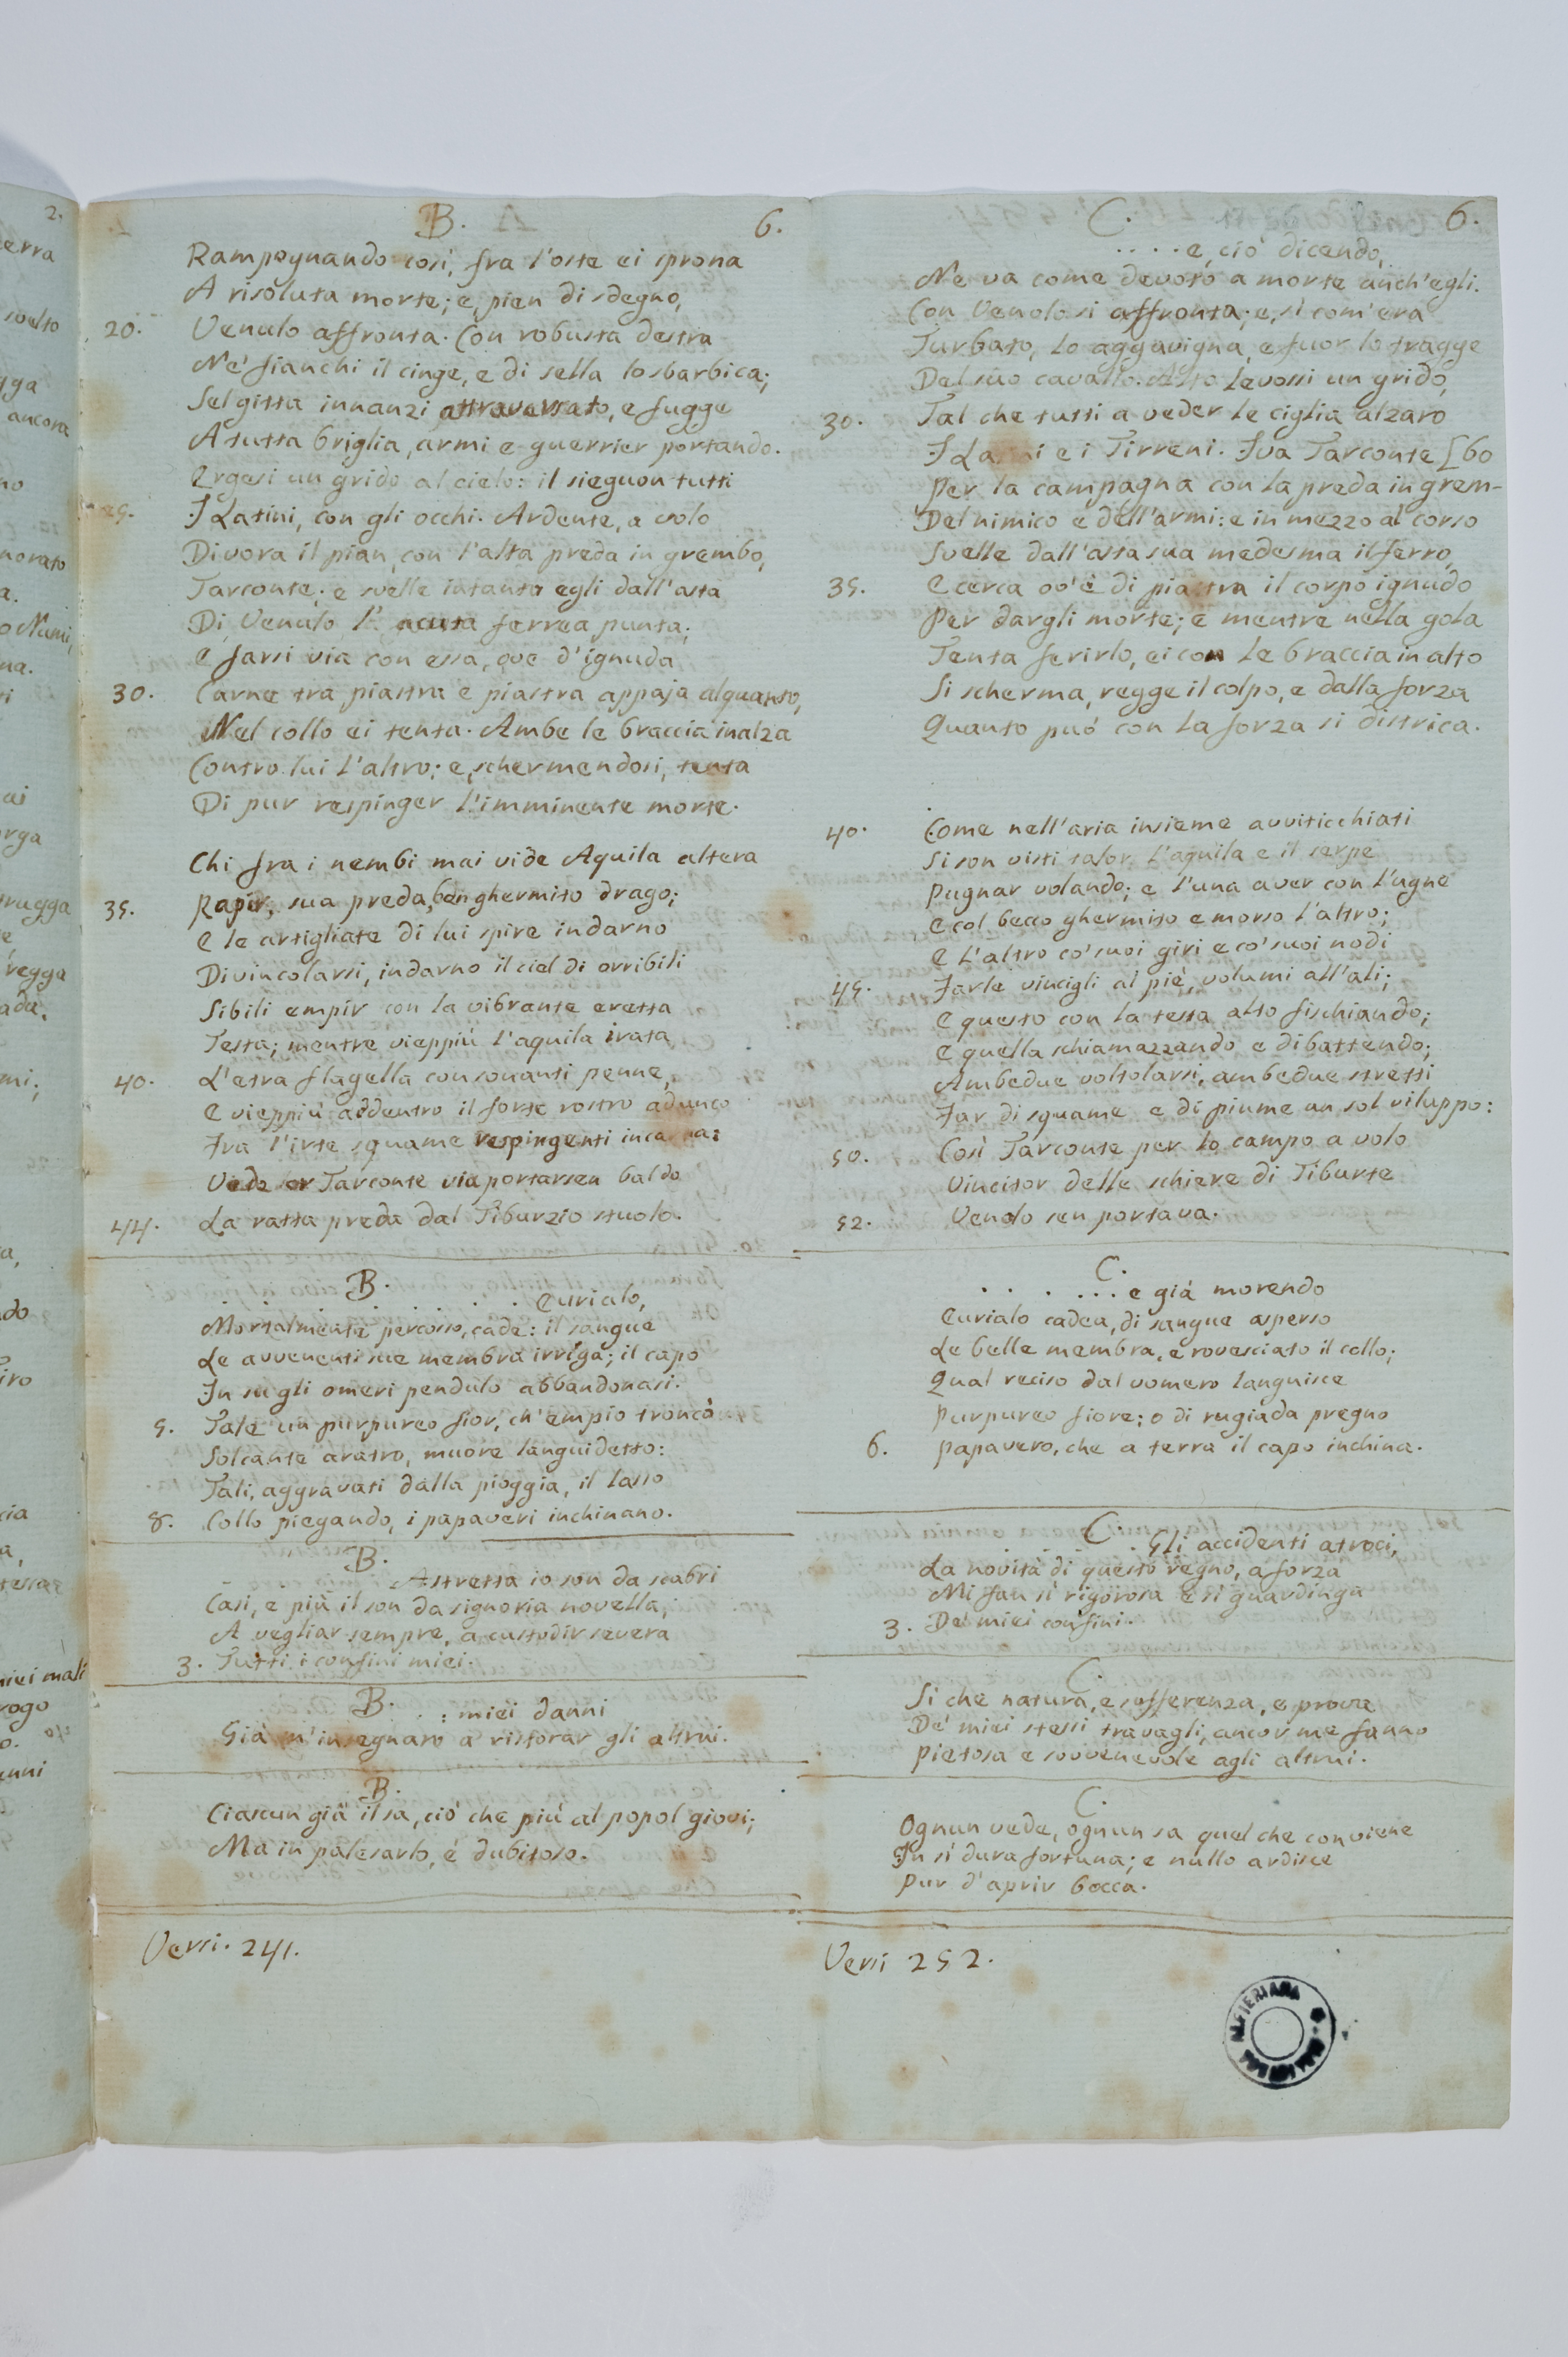 B. 6.
Rampognando così, fra l'oste ei sprona
A risoluta morte; e, pien di sdegno,
20. Venulo affronta. Con robusta destra
Ne' fianchi il cinge, e di sella lo sbarbica;
Sel gitta innanzi attraversato, e fugge
A tutta briglia, armi e guerrier portando.
Ergesi un grido al cielo: il sieguon tutti
25. I Latini, con gli occhi. Ardente, a volo
Divora il pian, con l'alta preda in grembo,
Tarconte; e svelle intanto egli dall'asta
Di Venulo l' acuta ferrea punta;
E farsi via con essa, ove d'ignuda
30. Carne tra piastra e piastra appaja alquanto,
Nel collo ei tenta. Ambe le braccia inalza
Contro lui l'altro; e, schermendosi, tenta
Di pur respinger l'imminente morte.
Chi fra i nembi mai vide Aquila altera
35. Rapir, sua preda, ben ghermito drago;
E le artigliate di lui spire indarno
Divincolarsi, indarno il ciel di orribili
Sibili empir con la vibrante eretta
Testa; mentre vieppiù l'aquila irata
40. L'etra flagella con sonanti penne,
E vieppiù addentro il forte rostro adunco
Fra l'irte squame respingenti incarna:
Vede or Tarconte via portarsen baldo
44. La ratta preda dal Tiburzio stuolo.
B.
. . . . . . . Eurialo,
Mortalmente percosso, cade: il sangue
Le avvenenti sue membra irriga; il capo
In su gli omeri pendulo abbandonasi.
5. Tale un purpureo fior, ch'empio troncò
Solcante aratro, muore languidetto:
Tali, aggravati dalla pioggia, il lasso
8. Collo piegando, i papaveri inchinano.
B.
Astretta io son da scabri
Casi, e più il son da signoria novella,
A vegliar sempre, a custodir severa
3. Tutti i confini miei.
B.
. . : miei danni
Già m'insegnaro a ristorar gli altrui.
B.
Ciascun già il sa, ciò che più al popol giovi;
Ma in palesarlo, è dubitoso.
Versi. 241.
C. 6.
. . . . e, ciò dicendo,
Ne va come devoto a morte anch'egli.
Con Venolo si affronta; e, sì com'era
Turbato, lo aggavigna, e fuor lo tragge
Del suo cavallo. Alto levossi un grido,
30. Tal che tutti a veder le ciglia alzaro
I Latini e i Tirreni. Iva Tarconte [bo
Per la campagna con la preda in grem-
Del nimico e dell'armi: e in mezzo al corso
Svelle dall'asta sua medesma il ferro,
35. E cerca ov'è di piastra il corpo ignudo
Per dargli morte; e mentre nella gola
Tenta ferirlo, ei con le braccia in alto
Si scherma, regge il colpo, e dalla forza
Quanto può con la forza si districa.
40. Come nell'aria insieme avviticchiati
Si son visti talor l'aquila e il serpe
Pugnar volando; e l'una aver con l'ugne
E col becco ghermito e morso l'altro;
E l'altro co' suoi giri e co' suoi nodi
45. Farle vincigli al piè, volumi all'ali;
E questo con la testa alto fischiando;
E quella schiamazzando e dibattendo;
Ambedue voltolarsi, ambedue stretti
Far di squame e di piume un sol viluppo:
50. Così Tarconte per lo campo a volo
Vincitor delle schiere di Tiburte
52. Venolo sen portava.
C.
. . . . . . e già morendo
Eurialo cadea, di sangue asperso
Le belle membra, e rovesciato il collo;
Qual reciso dal vomero languisce
Purpureo fiore: o di rugiada pregno
6. Papavero, che a terra il capo inchina.
C.
. . . . Gli accidenti atroci,
La novità di questo regno, a forza
Mi fan sì rigorosa e sì guardinga
3. De' miei confini.
C.
Sì che natura, e sofferenza, e prove
De' miei stessi travagli, ancor me fanno
Pietosa e sovvenevole agli altrui.
C.
Ognun vede, ognun sa quel che conviene
In sì dura fortuna; e nullo ardisce
Pur d'aprir bocca.
Versi 252.
ALFIERIANA